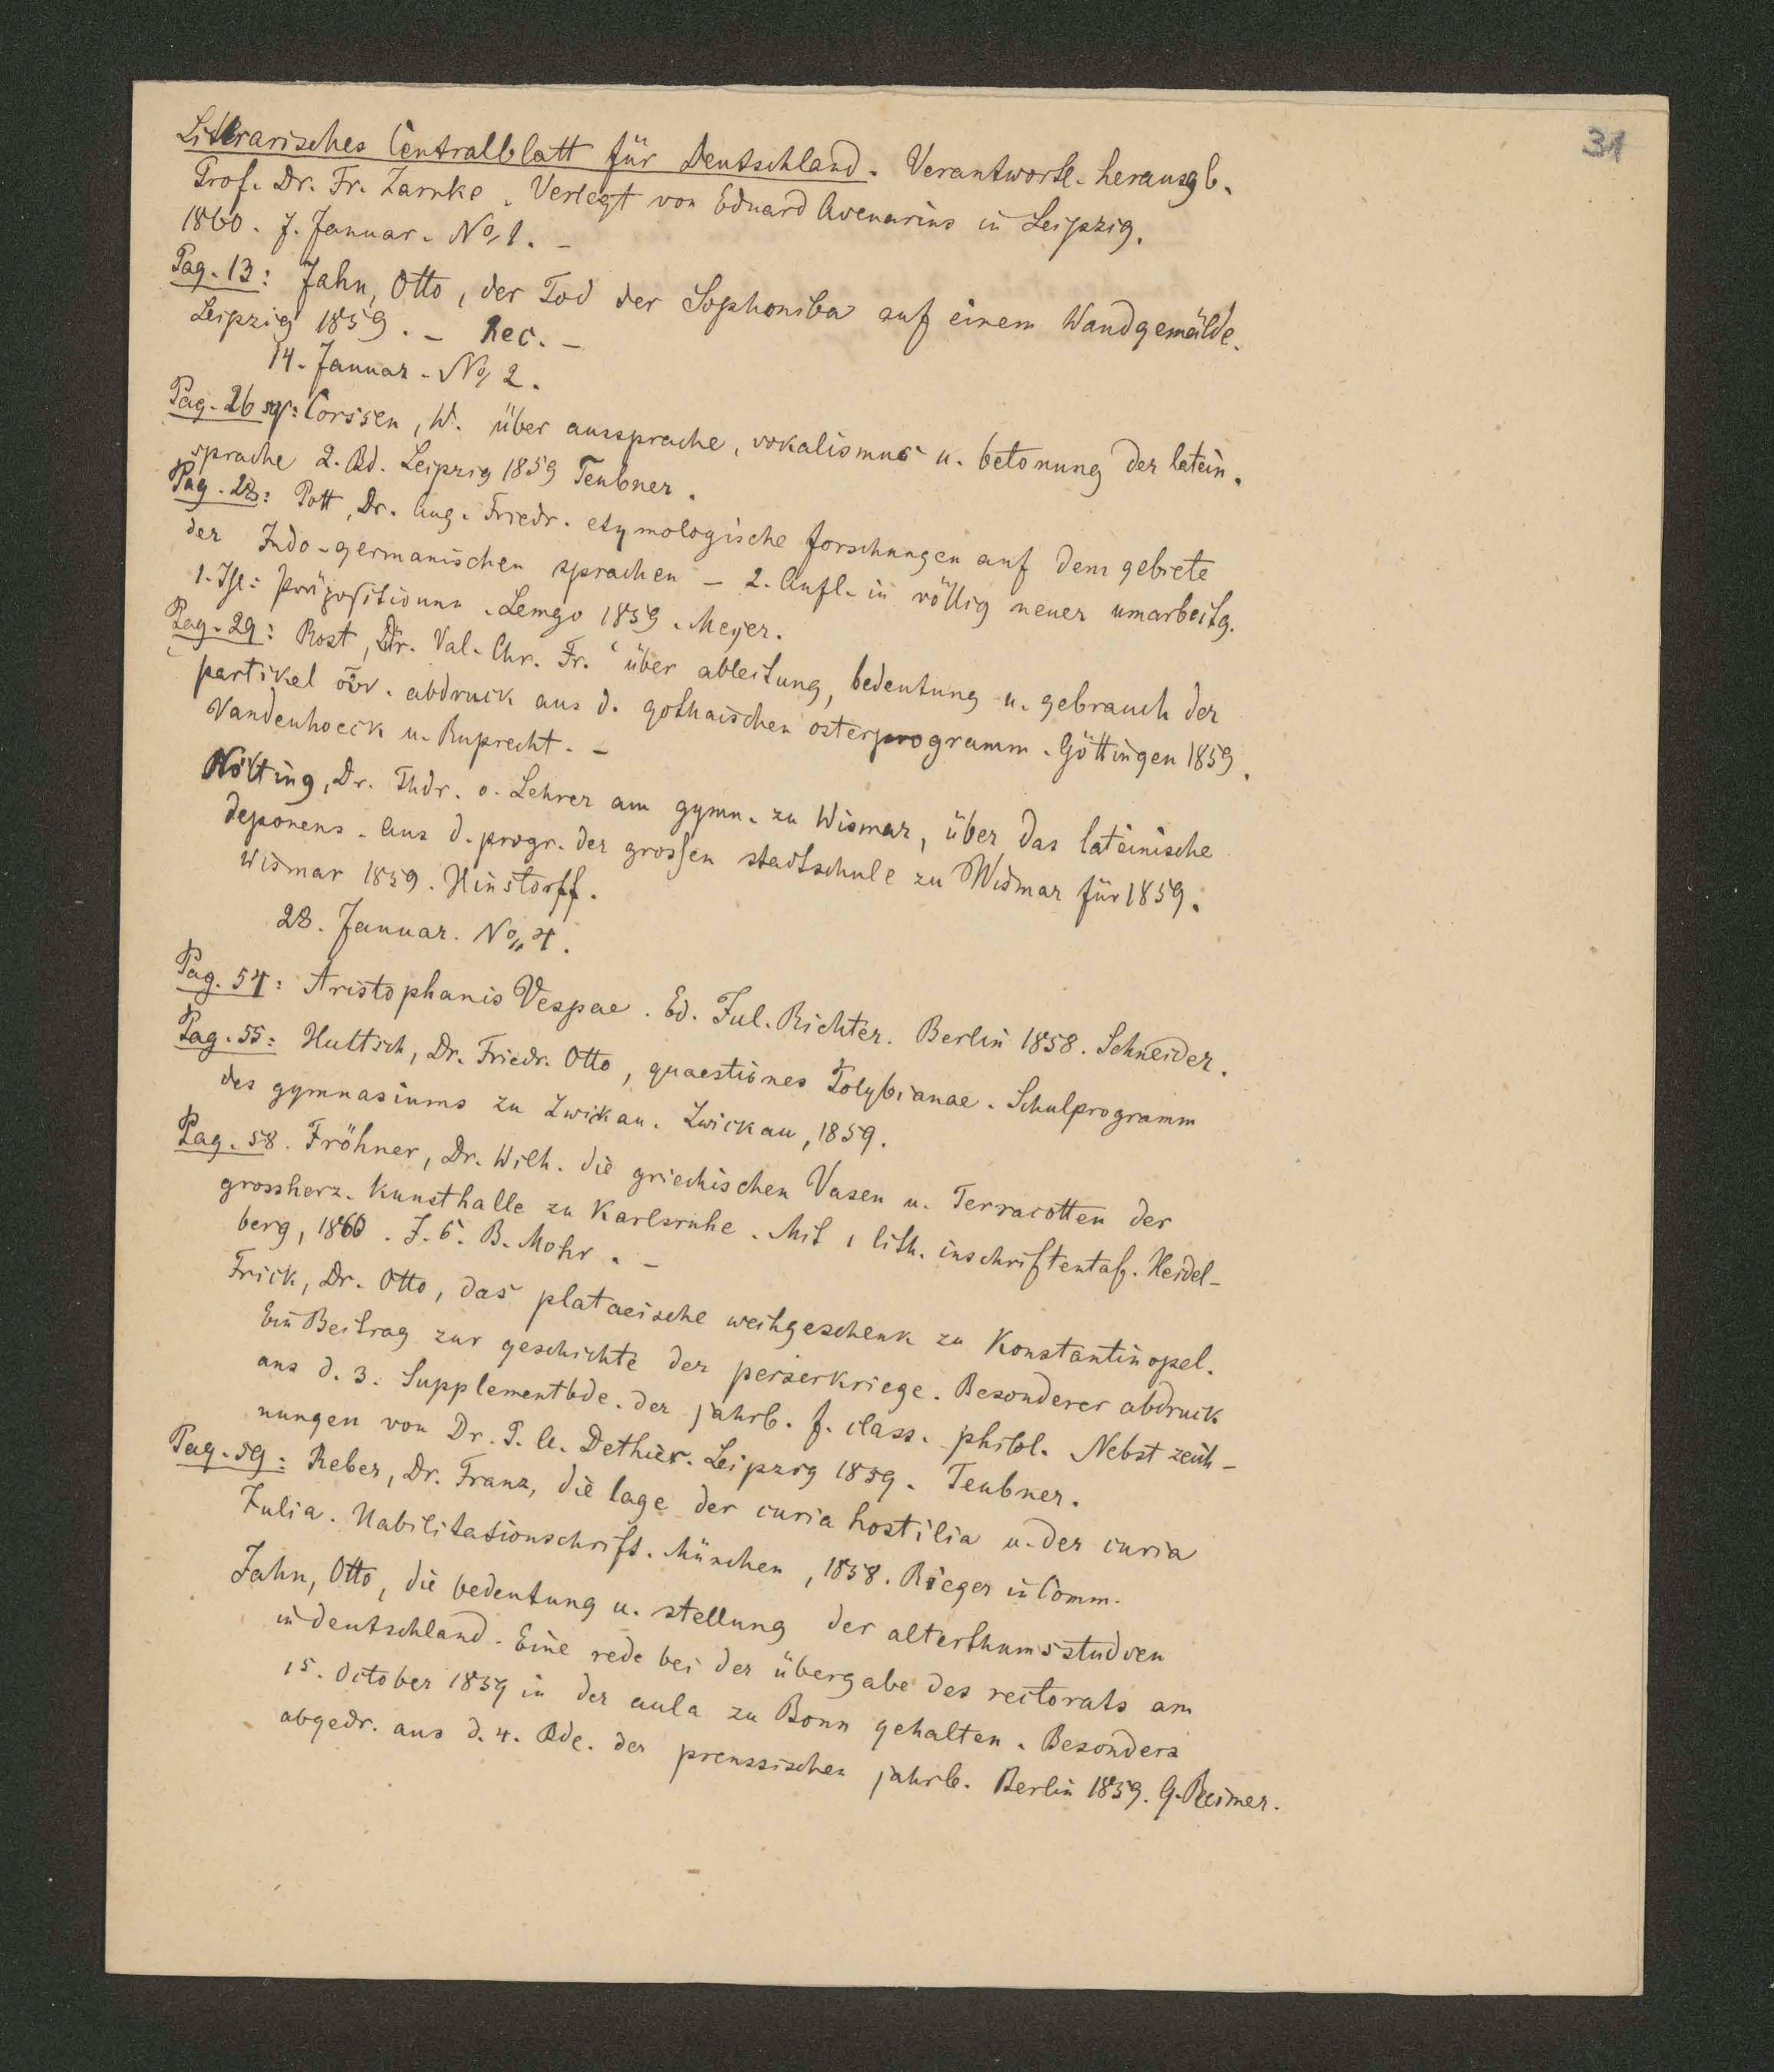 31
Literarisches Centralblatt für Deutschland. Verantwortl. herausgb.
Prof. Dr. Fr. Zarnke. Verlegt von Eduard Avenarius in Leipzig.
1860. 7. Januar. No, 1. –
Pag. 13: Jahn, Otto, der Tod der Sophoniba auf einem Wandgemälde.
Leipzig 1859. – Rec. –
14. Januar. No, 2.
Pag. 26 sq: Corssen, W. über aussprache, vokalismus u. betonung der latein.
sprache 2. Bd. Leipzig 1859 Teubner.
Pag. 28: Pott, Dr. Aug. Friedr. etymologische forschungen auf dem gebiete
der Indo-germanischen sprachen – 2. Aufl. in völlig neuer umarbeitg.
1. Thl: Präpositionen. Lemgo 1859. Meyer.
Pag. 29: Rost, Dr. Val. Chr. Fr. über ableitung, bedeutung u. gebrauch der
partikel οὖν. abdruck aus d. gothaischen osterprogramm. Göttingen 1859.
Vandenhoeck u. Ruprecht. –
Nölting, Dr. Thdr. o. Lehrer am gymn. zu Wismar, über das lateinische
deponens. Aus d. progr. der grossen stadtschule zu Wismar für 1859.
Wismar 1859. Hinstorff.
28. Januar. No,, 4.
Pag. 54: Aristophanis Vespae. Ed. Jul. Richter. Berlin 1858. Schneider.
Pag. 55: Hultsch, Dr. Friedr. Otto, quaestiones Polybianae. Schulprogramm
des gymnasiums zu Zwickau. Zwickau, 1859.
Pag. 58. Fröhner, Dr. Wilh. die griechischen Vasen u. Terracotten der
grossherz. Kunsthalle zu Karlsruhe. Mit 1 lith. inschriftentaf. Heidel-
berg, 1860. J. C. B. Mohr. –
Frick, Dr. Otto, das plataeische weihgeschenk zu Konstantinopel.
Ein Beitrag zur geschichte der perserkriege. Besonderer abdruck
aus d. 3. Supplementbde. der jahrb. f. class. philol. Nebst zeich-
nungen von Dr. P. A. Dethier. Leipzig 1859. Teubner.
Pag. 59: Reber, Dr. Franz, die lage der curia hostilia u. der curia
Julia. Habilitationschrift. München, 1858. Rieger in Comm.
Jahn, Otto, die bedeutung u. stellung der alterthumsstudien
in deutschland. Eine rede bei der übergabe des rectorats am
15. October 1859 in der aula zu Bonn gehalten. Besonders
abgedr. aus d. 4. Bde. der preussischen jahrb. Berlin 1859. G. Reimer.